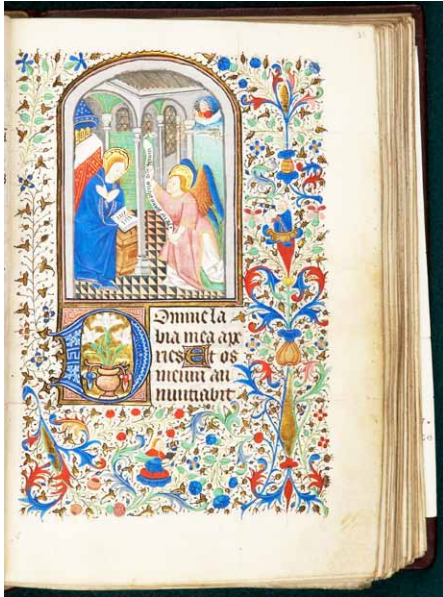 Domine la
bia mea ape
ries Et os
meum an
nuntiabit